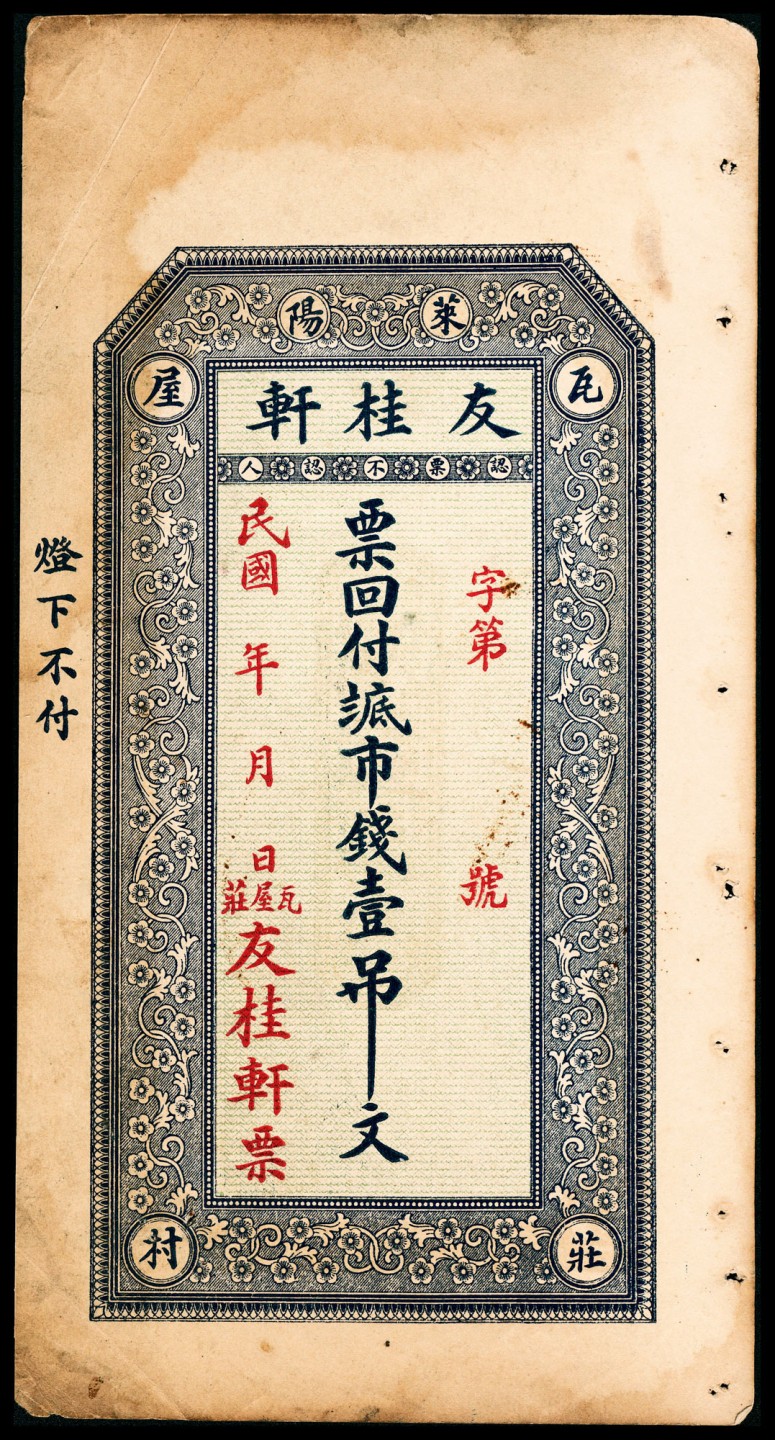 萊陽
瓦屋
莊村
友桂軒
認票不認人
字第 號
票回付市錢壹吊文
民國 年 月 日
瓦屋莊
友桂軒票
燈下不付